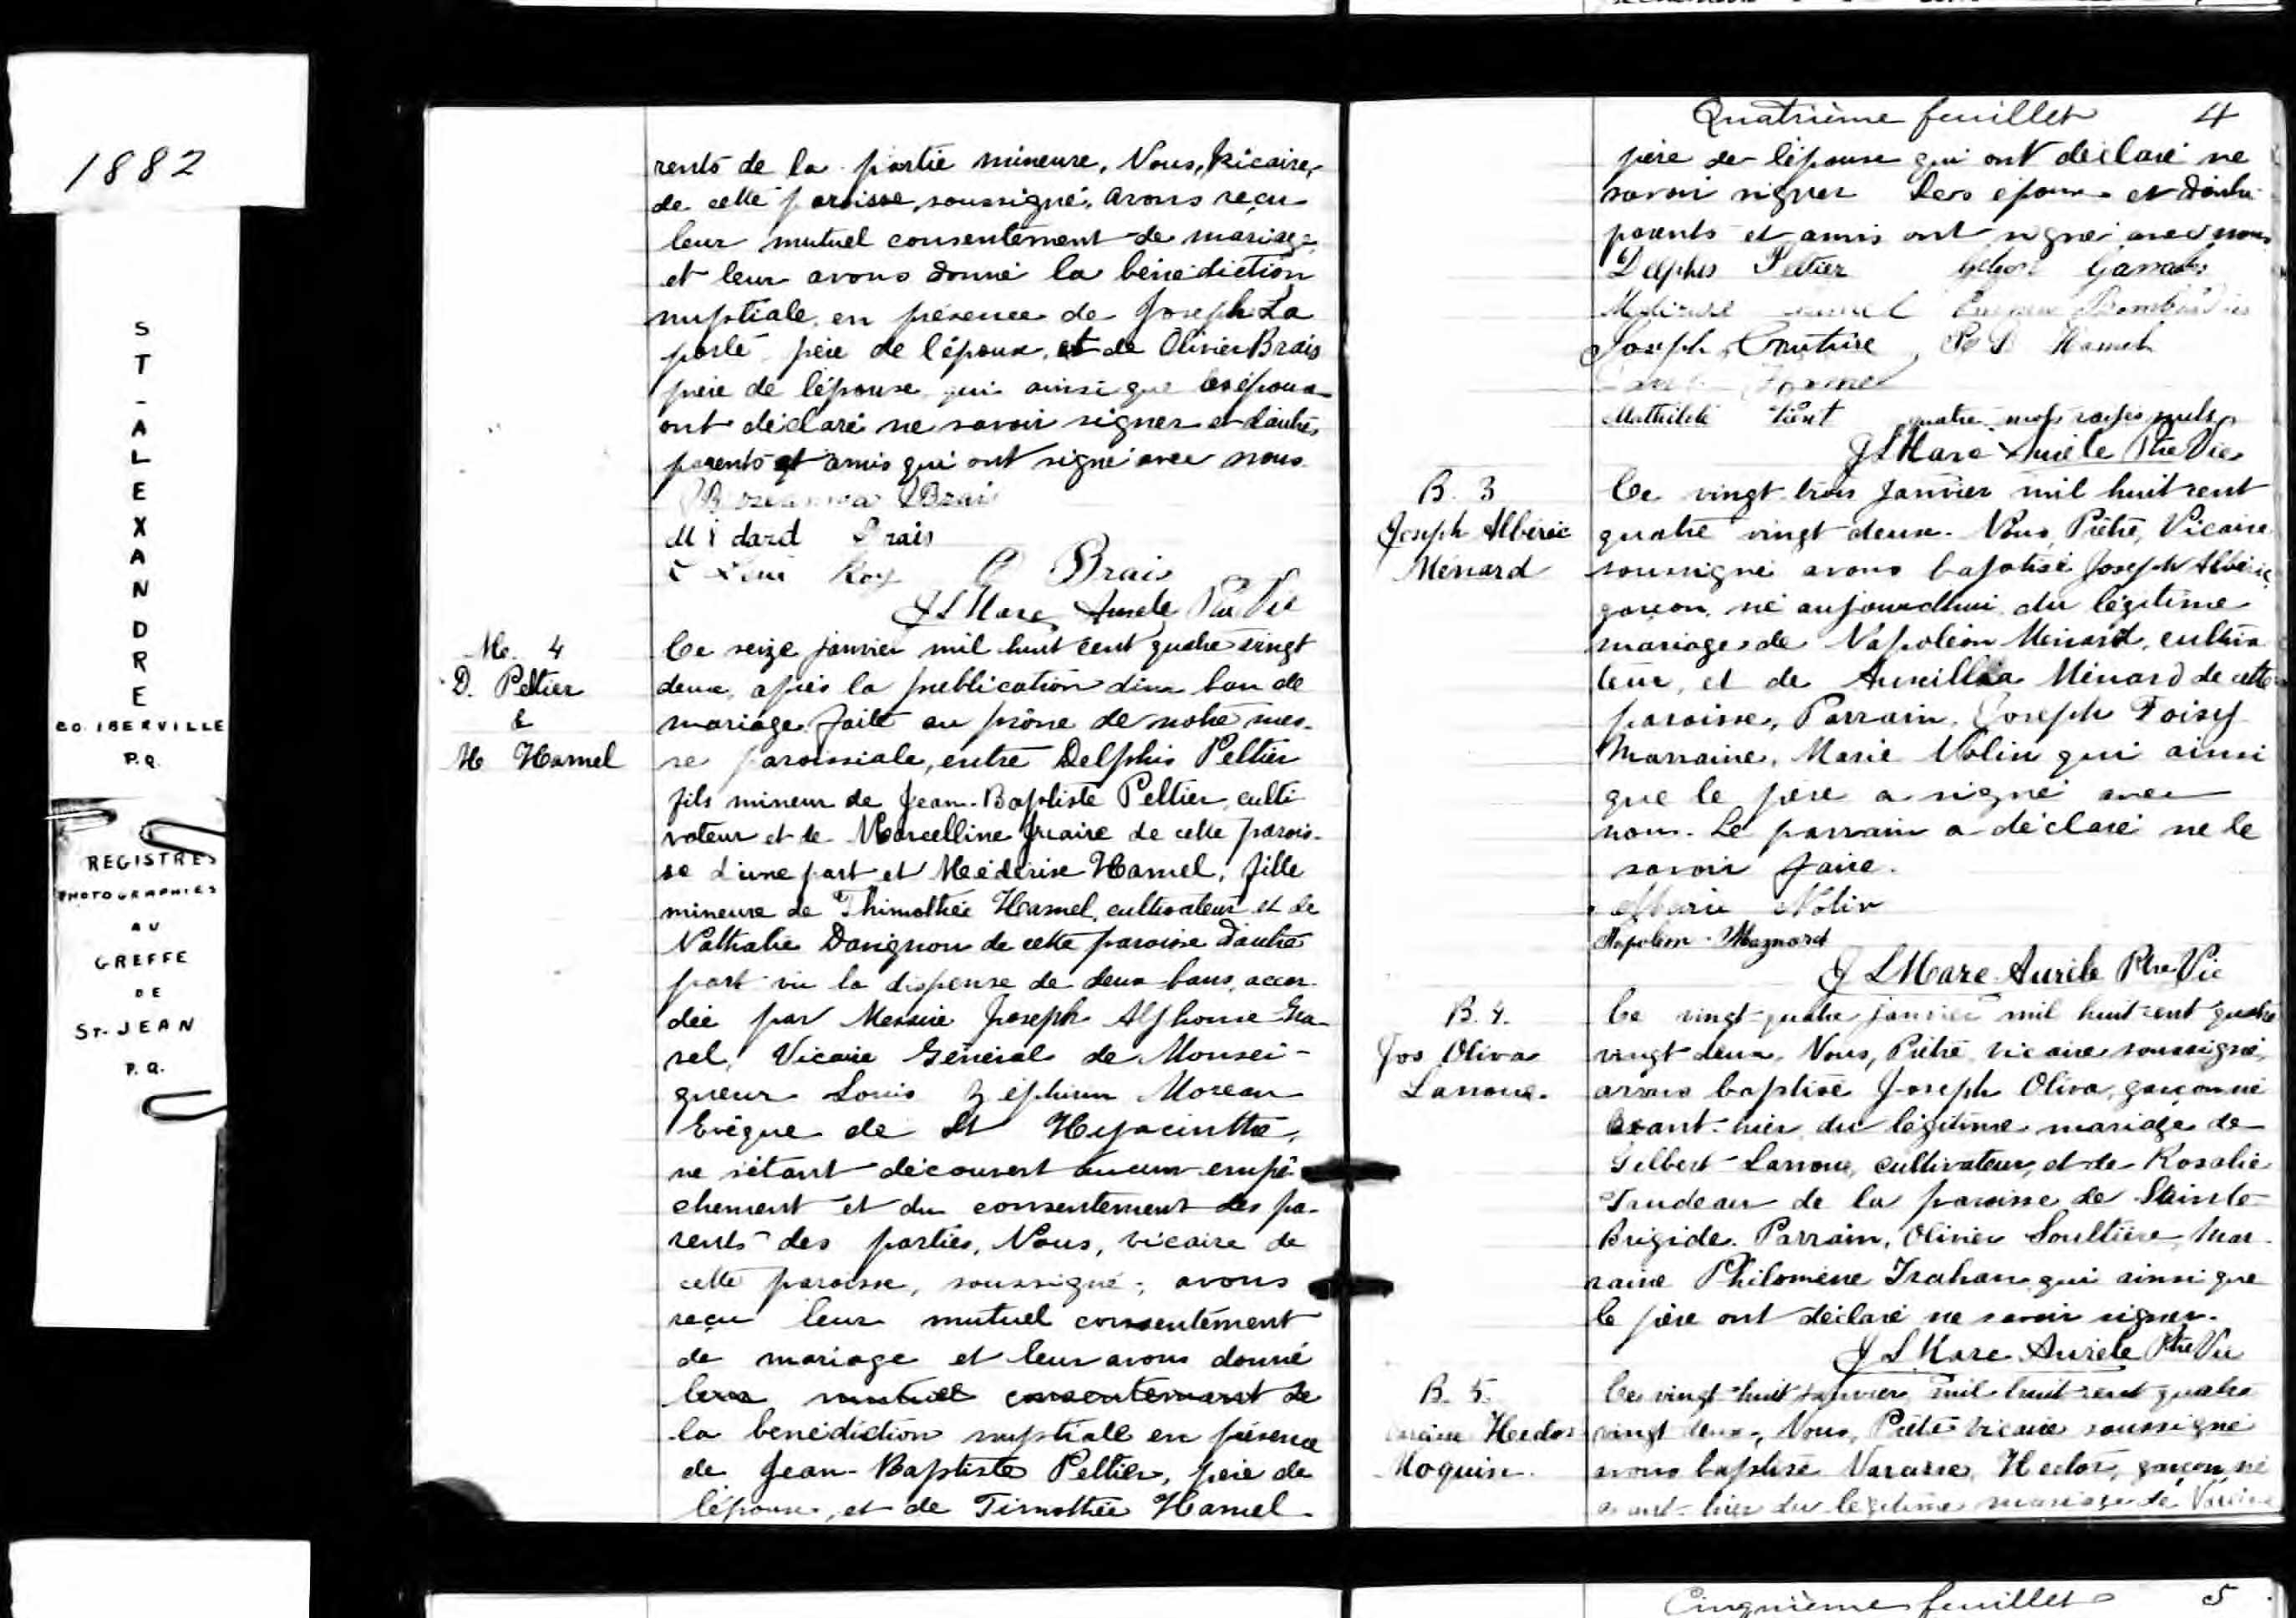 1882
ST-ALEXANDRE
CO. IBERVILLE
P.Q.
REGISTRES
PHOTOGRAPHIES
AU
GREFFE
DE
ST-JEAN
P.Q.
rents de la partie mineure, Nous, Vicaire,
de cette paroisse, soussigné, avons reçu
leur mutuel consentement de mariage
et leur avons donné la bénédiction
nuptiale en présence de Joseph La
porte père de l'époux, et de Olivier Brais
père de l'épouse qui ainsi que les époux
ont déclaré ne savoir signer et d'autres
parents et amis qui ont signé avec nous.
Brai
Médard Brais
Roy O Brais
J L Marc Aurele Ptre Vic
M. 4
D. Peltier
&
M Hamel
Ce seize janvier mil huit cent quatre vingt
deux, après la publication d'un ban de
mariage faite au prône de notre mes-
se paroissiale, entre Delphis Peltier
fils mineur de Jean-Baptiste Peltier, culti
vateur et de Marcelline Juaire de cette parois-
se d'une part et Médérise Hamel, fille
mineure de Thimothée Hamel, cultivateur et de
Nathalie Davignon de cette paroisse d'autre
part vu la dispense de deux bans, accor
dée par Messire Joseph Alphonse Gra-
vel, Vicaire Général de Monsei-
gneur Louis Zéphirin Moreau
Evêque de St Hyacinthe,
ne s'étant découvert aucun empê-
chement et du consentement des pa-
rents des parties, Nous, vicaire de
cette paroisse, soussigné, avons
reçu leur mutuel consentement
de mariage et leur avons donné
leur mutuel consentement de
la bénédiction nuptiale en présence
de Jean-Baptiste Peltier, père de
l'époux, et de Timothée Hamel
Quatrième feuillet 4
père de l'épouse qui ont déclaré ne
savoir signer Les époux et d'autres
parents et amis ont signé avec nous
Delphis Peltier
Joseph Couture Hamel
Mathilde quatre mots rayés nuls
J L Marc Aurele Ptre Vic
B. 3
Joseph Albéric
Ménard
Ce vingt trois Janvier mil huit cent
quatre vingt deux. Nous, Prêtre, Vicaire
soussigné avons baptisé Joseph Albéric
garçon, né aujourdhui du légitime
mariage de Napoléon Ménard, cultiva
teur, et de Aurillia Ménard de cette
paroisse, Parrain, Joseph Foisy
Marraine, Marie Nolin qui ainsi
que le père a signé avec
nous. Le parrain a déclaré ne le
savoir faire.
Marie Nolin
Napoléon Maynard
J L Marc Aurele Ptre Vic
B. 4.
Jos Oliva
Lanoue.
Ce vingt-quatre janvier mil huit cent quatre
vingt deux, Nous, Prêtre vicaire soussigné,
avons baptisé Joseph Oliva, garçon né
avant-hier du légitime mariage de
Gilbert Lanoue, cultivateur, et de Rosalie
Trudeau de la paroisse de Sainte
Brigide. Parrain, Olivier Soultière, Mar-
raine Philomène Trahan qui ainsi que
le père ont déclaré ne savoir signer.
J L Marc Aurele Ptre Vic
B. 5.
Hector
Moquin.
Ce vingt-huit Janvier mil huit cent quatre
vingt deux, Nous, Prêtre vicaire soussigné
avons baptisé Narcisse Hector, garçon né
avant-hier du légitime mariage de
Cinquième feuillet 5